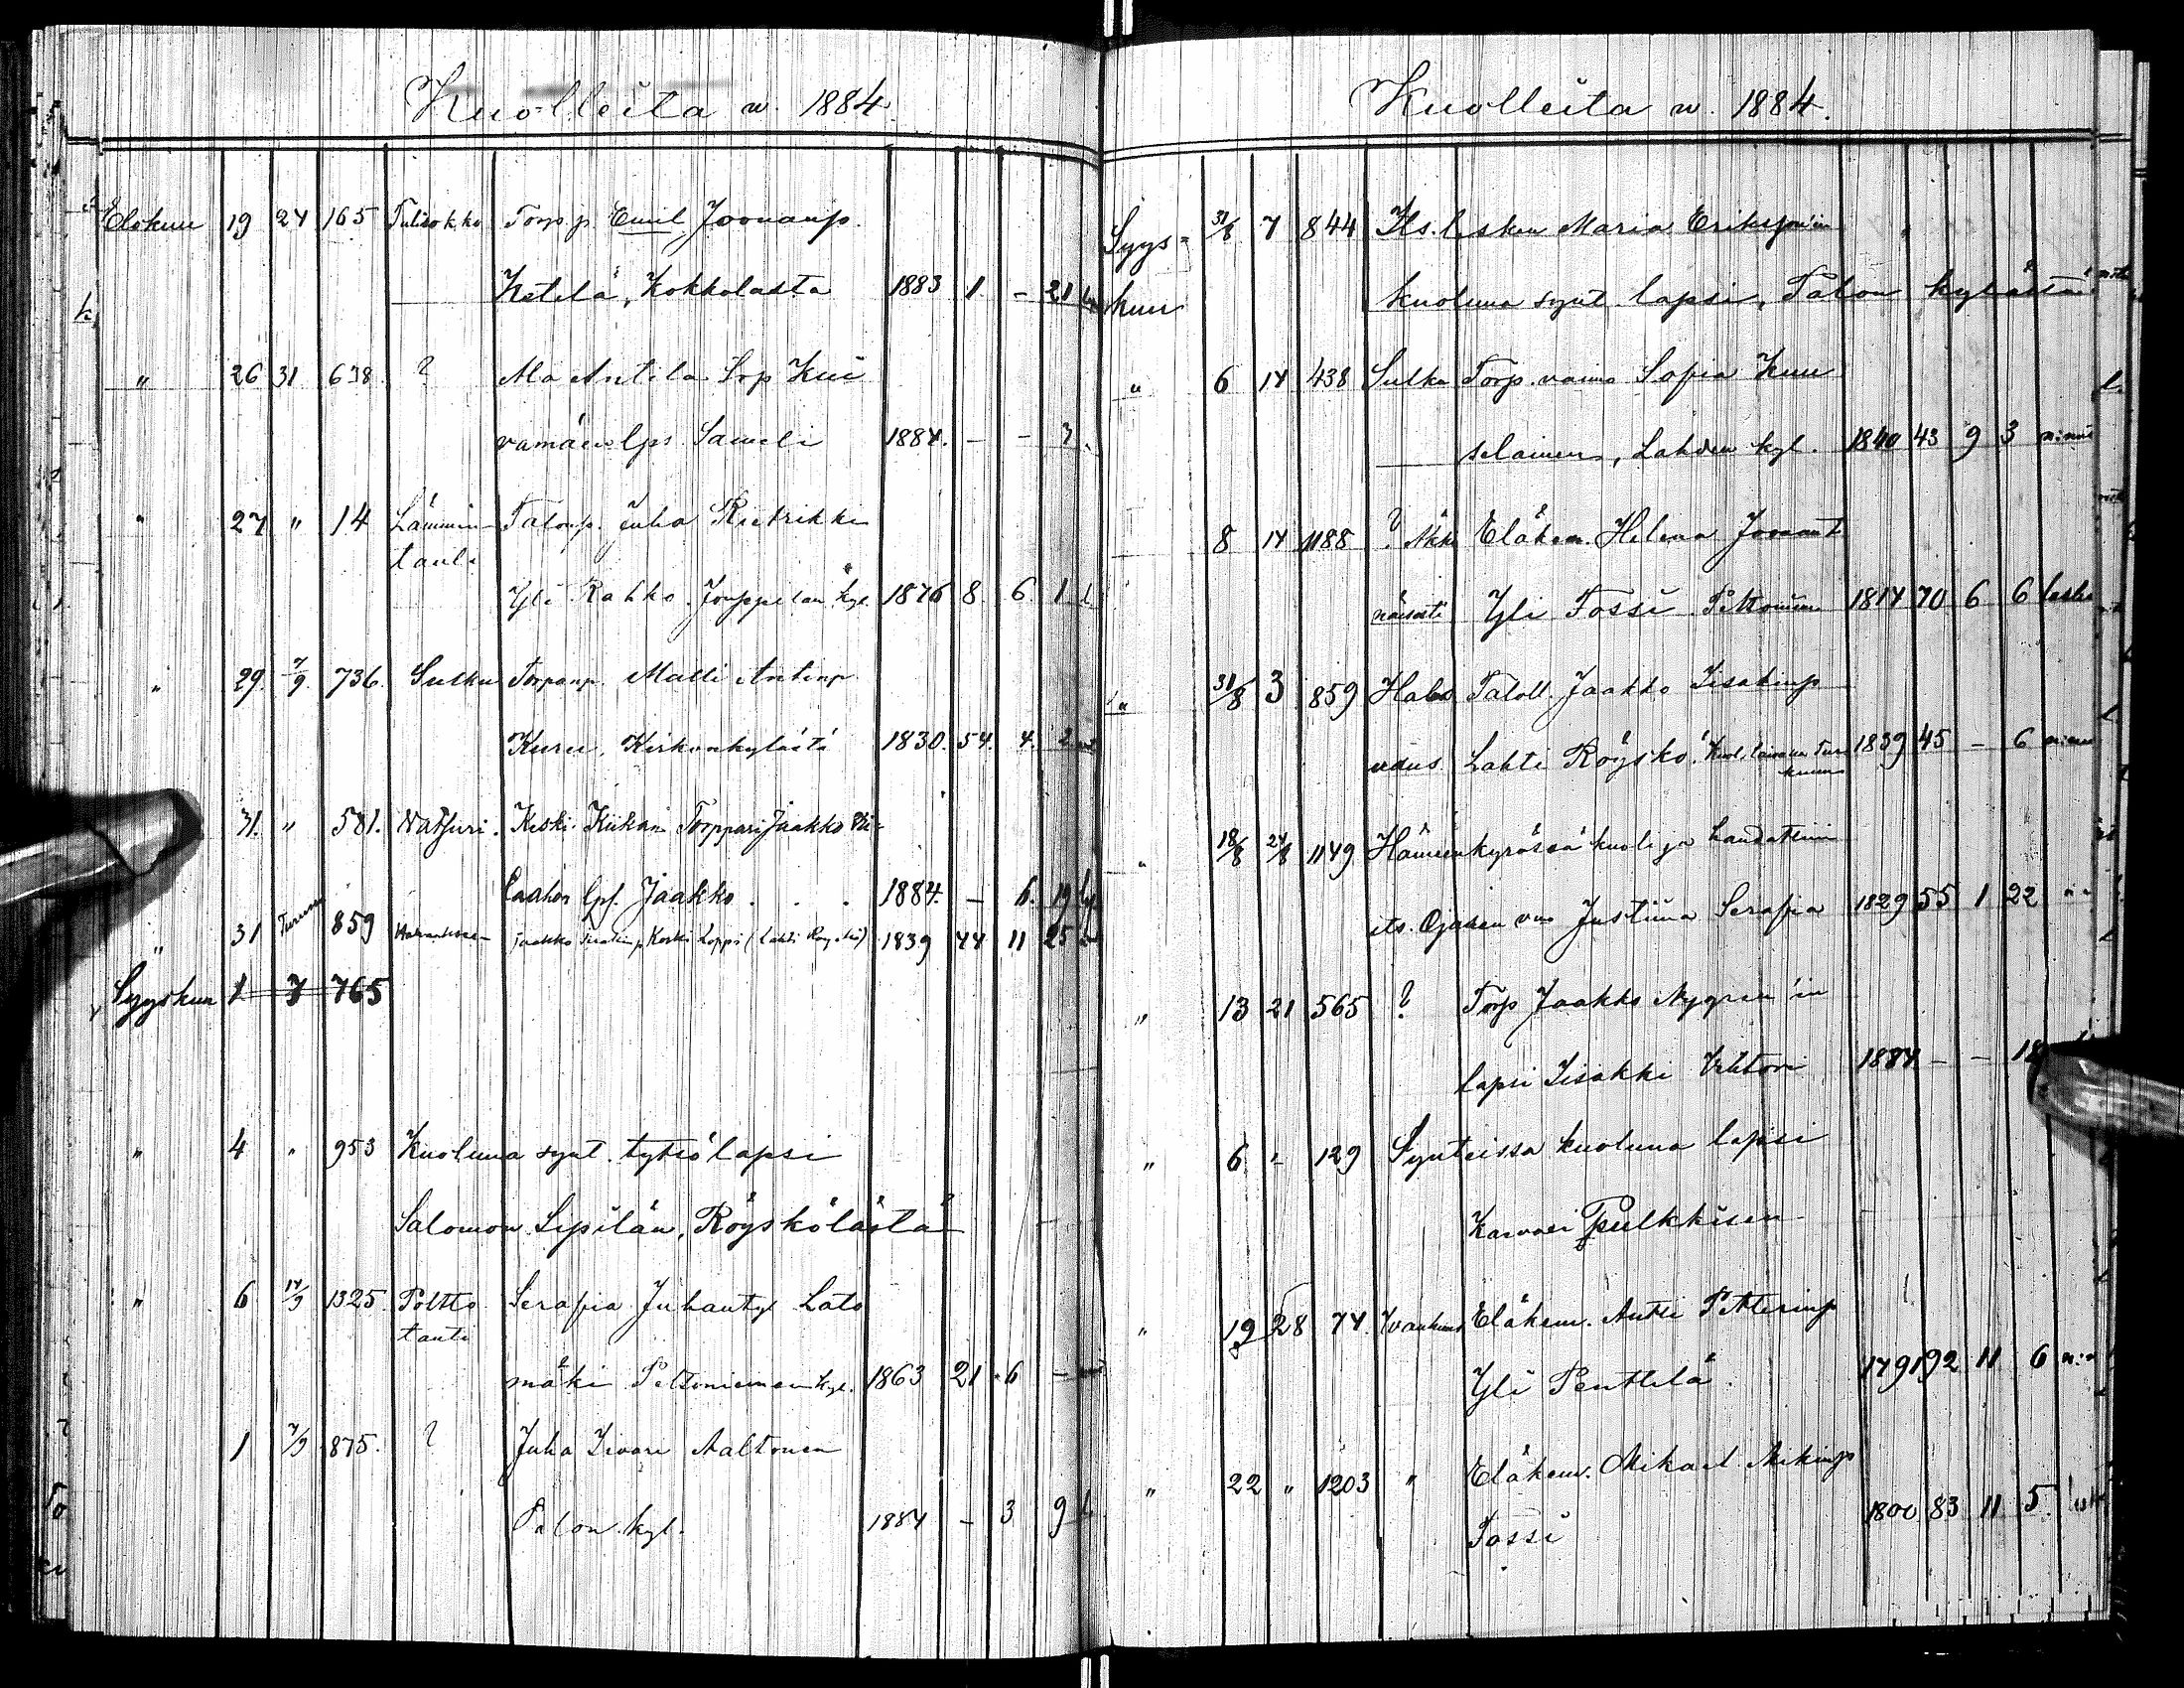 Kuolleita w. 1884.
Elokuu 19 24 165 Tulirokko Torp. p. Emil Joonanp.
Ketelä, Kokkolasta 1883 1 - 21
" 26 31 638 ? Ma Antila Srp Kui
vamäen lps Sameli 1884. - - 3
" 27 " 14 Lämmin- Talonp. Juha Rietrikki
tauti
Yli Rahko. Jouppilan kyl. 1876 8 6 1
" 29. 7/9. 736. Sulku Torpanp. Matti Antinp
Kuru, Kirkonkylästä 1830. 54. 4. 2
31. " 581. Natsuri. Keski Kiikan Torppari Jaakko
lps. Jaakko . . . 1884. - 6. 19
" 31 Turussa 859 Jaakko Koski Loppi (Lahti Röyskö) 1839 44 11 25
Syyskuu 1 7 765
" 4 " 953 Kuolluna synt. tyttölapsi
Salomon Sipilän, Röyskölästä
" 6 14/9 1325 Poltto Serafia Juhantyt Lato
tauti
mäki Peltoniemen kyl. 1863 21 6 -
1 7/9 875. ? Juha Iivari Aaltonen
Palon kyl. 1884 - 3 9
Kuolleita w. 1884.
Syys= 31/8 7 844 Its. lesken Maria Eriksson'in
kuun kuoluna synt. lapsi, Talon kylästä
" 6 14 438 Sulku Torp. vaimo Sofia Kuu
selainen, Lahden kyl. 1840 43 9 3
8 14 1188 ? Äkki Eläkem. Helena Joonant
näisesti Yli Tossi Peltoniemi 1814 70 6 6 leski
" 31/8 3 859 Taloll. Jaakko Iisakinp
Lahti Röyskö. 1839 45 - 6
" 18/8 24/8 1149 Hämeenkyrössä kuoli ja haudattiin
its. Ojasen vmo Justiina Serafia 1829 55 1 22
" 13 21 565 ? Torp Jaakko Nygren'in
lapsi Iisakki Vihtori 1884 - - 18
" 6 " 129 Synteissä kuoluna lapsi
Karvari Pulkkisen
" 19 28 74. Vanhuus Eläkem. Antti Petterinp
Yli Penttilä. 1791 92 11 6
" 22 " 1203 " Eläkem. Mikael Mikinp
Tossi 1800 83 11 5.